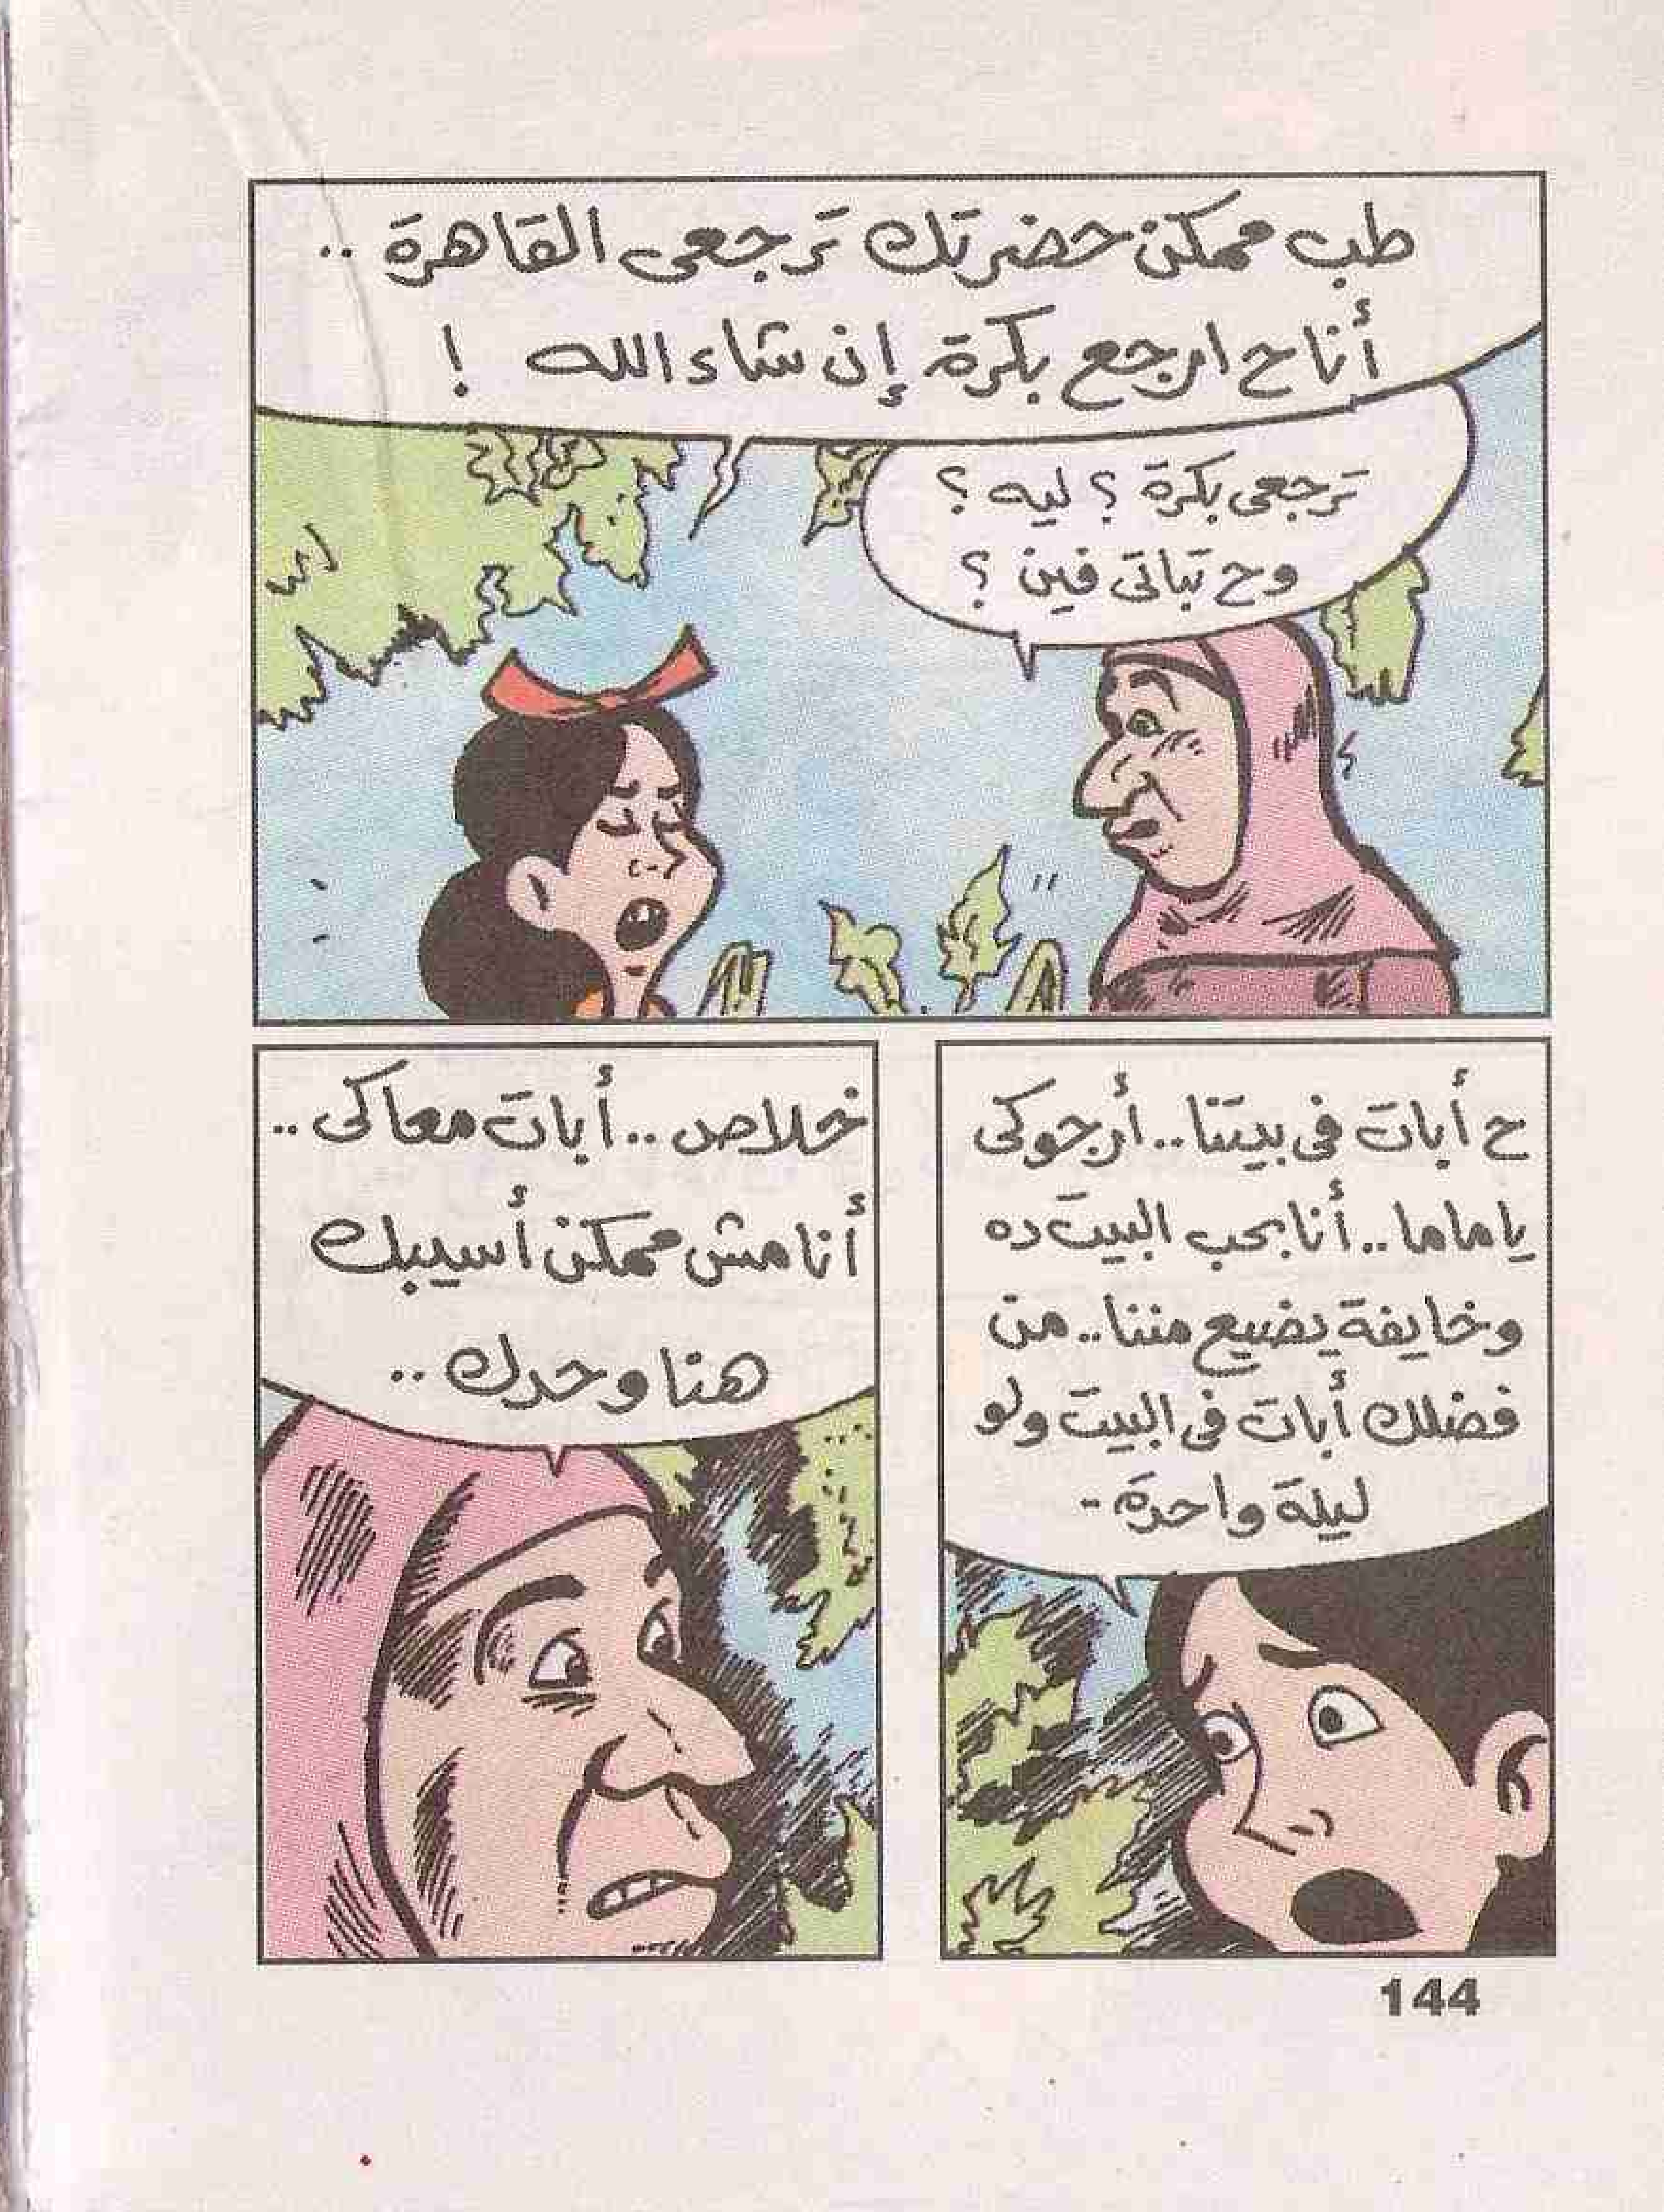 طب ممكن حضرتك ترجعى القاهرة ..
أنا ح ارجع بكرة إن شاء الله !
ترجعى بكرة ؟ ليه ؟
وح تباتى فين ؟
ح أبات فى بيتنا .. أرجوكى
يا ماما .. أنا بحب البيت ده
وخايفة يضيع مننا .. من
فضلك أبات فى البيت ولو
ليلة واحدة -
خلاص .. أبات معاكى ..
أنا مش ممكن أسيبك
هنا وحدك ..
144